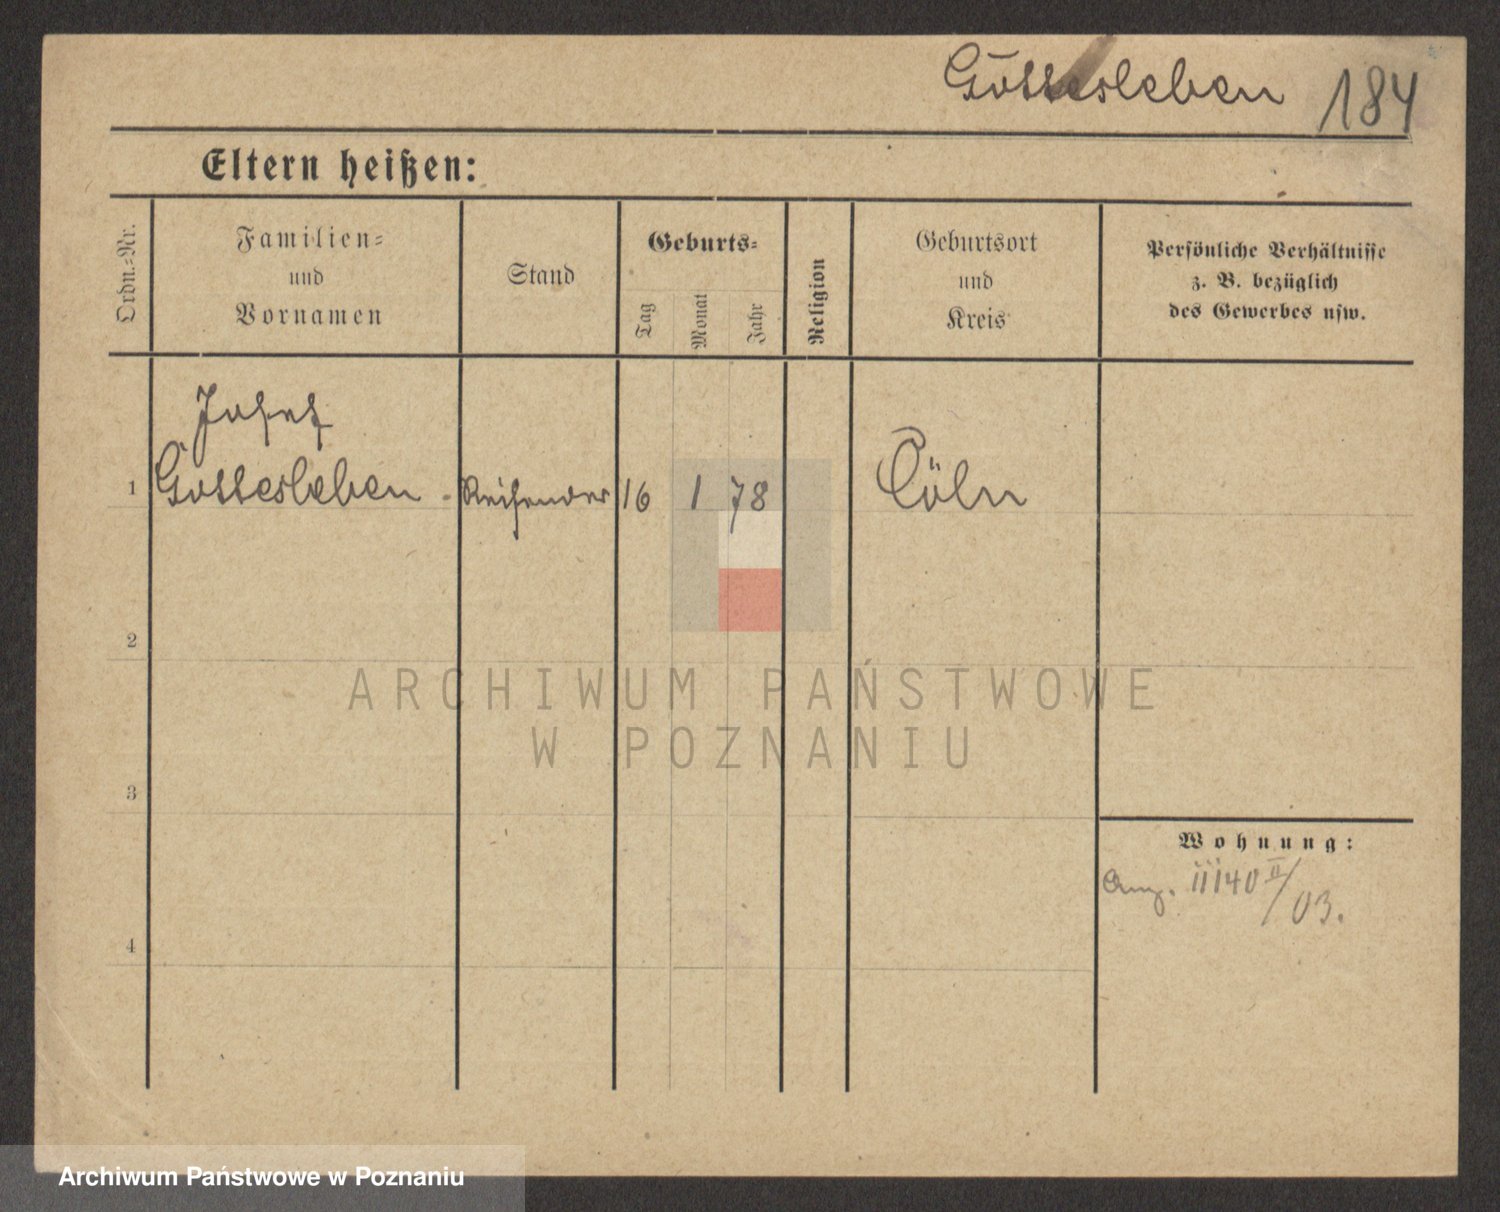 Gottesleben 184
Eltern heißen:
Ordn.-Nr.
Familien-
und
Vornamen
Stand
Geburts-
Tag
Monat
Jahr
Religion
Geburtsort
und
Kreis
Persönliche Verhältnisse
z. B. bezüglich
des Gewerbes usw.
Josef
1 Gottesleben Reisender 16 1 78 Cöln
2
ARCHIWUM PAŃSTWOWE
W POZNANIU
3
Wohnung:
Anz. 11140 II/03.
4
Archiwum Państwowe w Poznaniu